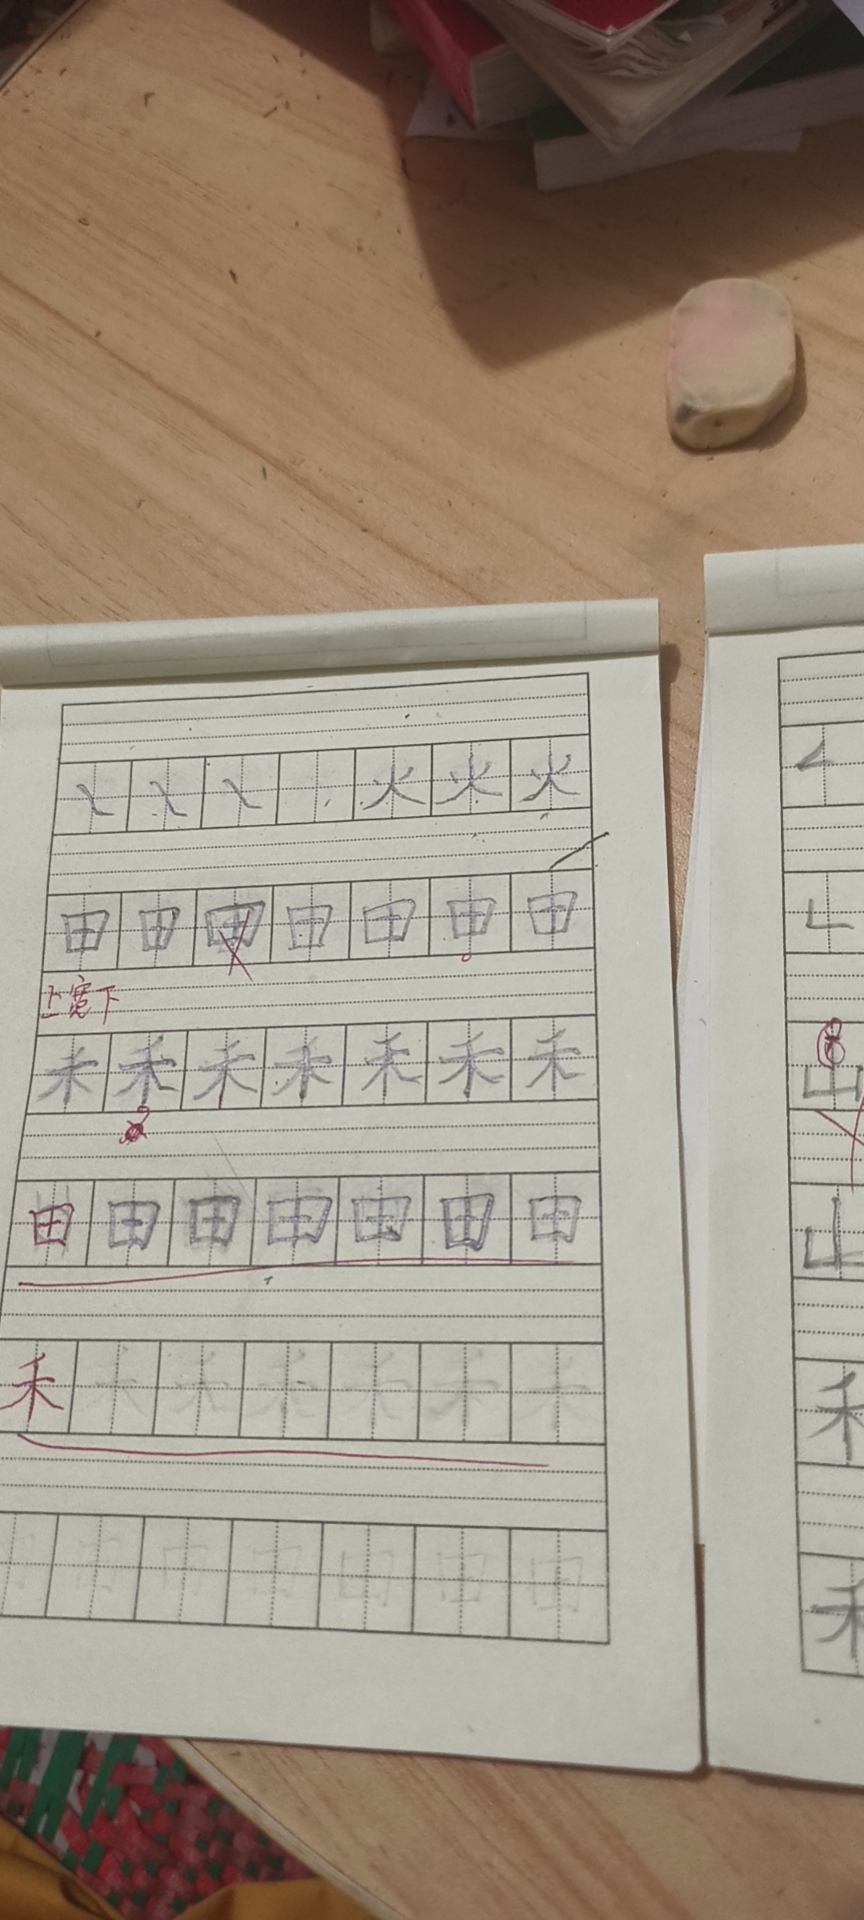 ㇏ ㇏ ㇏ 火 火 火
田 田 田 田 田 田 田
上宽下
禾 禾 禾 禾 禾 禾 禾
田 田 田 田 田 田 田
禾 禾 禾 禾 禾 禾 禾
田 田 田 田 田 田
山
山
禾
禾